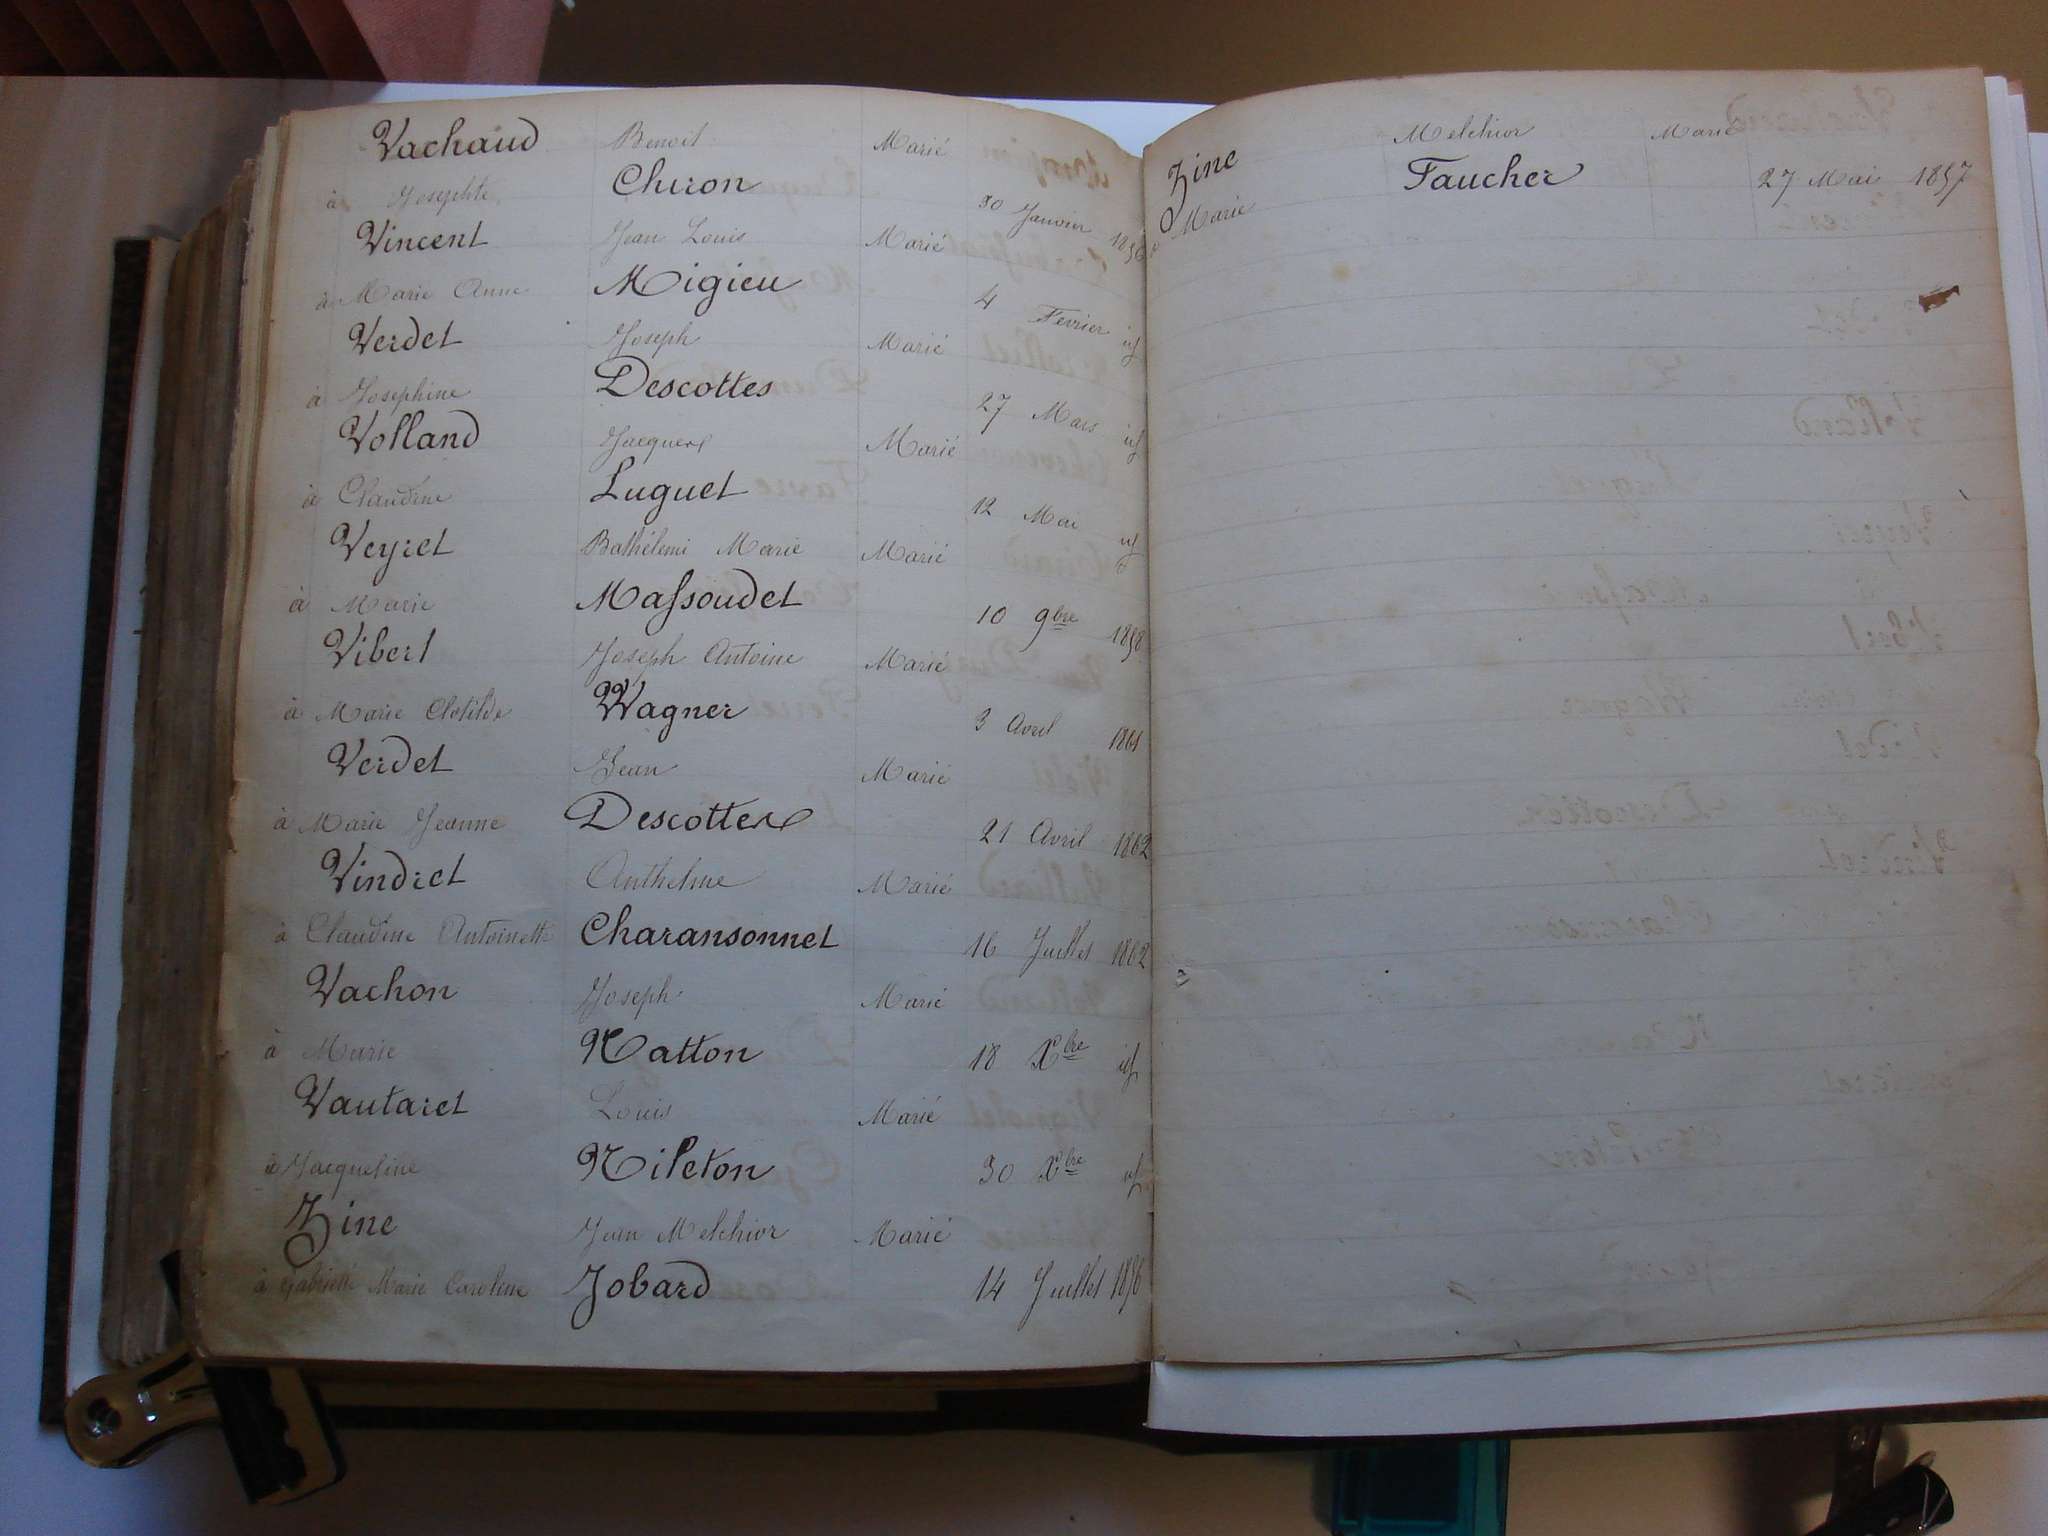 Vachaud Benoit Marié
à Josephte Chiron 30 Janvier 1856
Vincent Jean Louis Marié
à Marie Anne Migieu 4 Fevrier id
Verdet Joseph Marié
à Josephine Descottes 27 Mars id
Volland Jacques Marié
à Claudine Luguet 12 Mai id
Veyret Bathélemi Marie Marié
à Marie Massoudet 10 9bre 1858
Vibert Joseph Antoine Marié
à Marie Clotilde Wagner 3 Avril 1861
Verdet Jean Marié
à Marie Jeanne Descottes 21 Avril 1862
Vindret Anthelme Marié
à Claudine Antoinette Charansonnet 16 Juillet 1862
Vachon Joseph Marié
à Marie Natton 18 Xbre id
Vautaret Louis Marié
à Jacqueline Nileton 30 Xbre id
Zine Jean Melchior Marié
à Gabrielle Marie Caroline Jobard 14 Juillet 1856
Zine Melchior Marié
à Marie Faucher 27 Mai 1857